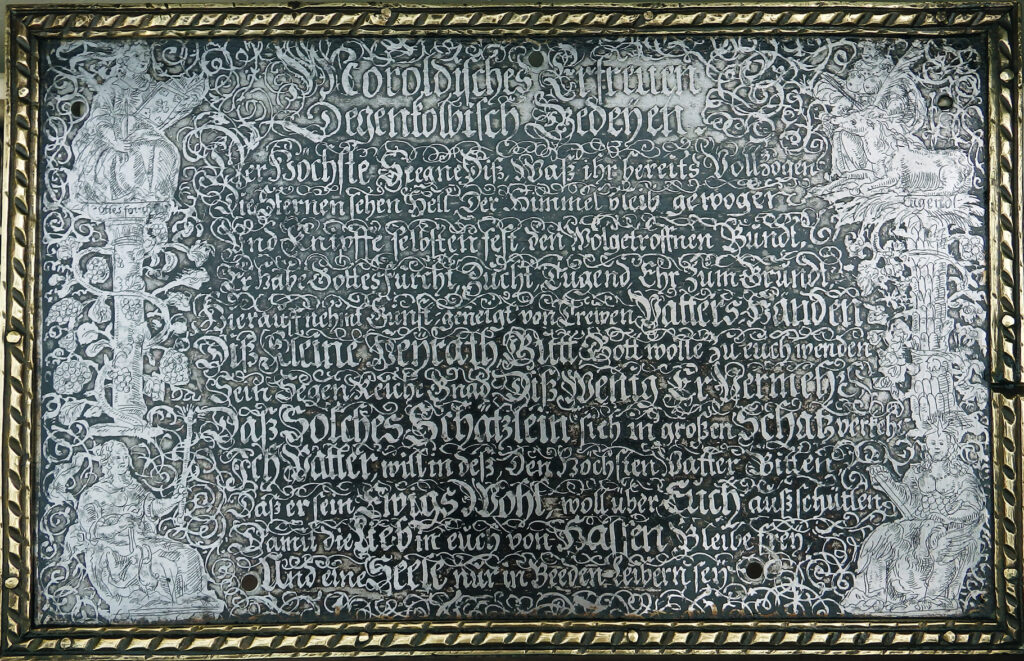 Noroldisches Erfreuen
Degenkolbisch Gedeyen.
Der Höchste Seegne diß, Waß ihr bereits Vollzogen
Die Sternen schen Heil, Der Himmel bleib gewogen
Und Knüpffe selbsten fest den Wolgetroffnen Bundt,
Er hab: Gottesfurcht, Zucht, Tugend, Ehr Zum Grundt
Hierauff nehmt Gunst geneigt von Trewen Vatters Händen
Diß Kleine Heyrath Gütt Gott wolle zu euch wenden
Sein Seegen Reiche Gnad Diß Wenig Er Vermehr
Daß Solches Schätzlein sich in großen Schatz verkehr
Ich Vatter will in deß Den Höchsten Vatter Bitten
Daß er sein Ewigs Wohl woll über Euch außschütten
Damit die Lieb in euch von Hassen Bleibe frey
Und eine Seele nur in Beeden Leibern sey.
Gottesforcht
Tugendt